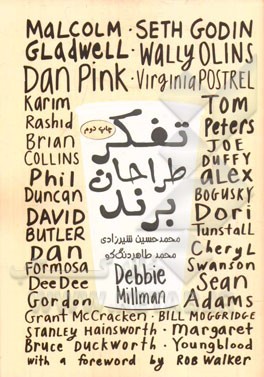 MALCOLM · SETH GODIN
GLADWELL · WALLY OLINS
DAN PINK · VIRGINIA POSTREL
KARIM
RASHID
BRIAN
COLLINS
PHIL
DUNCAN
DAVID
BUTLER
DAN
FORMOSA
DEE DEE
GORDON
چاپ دوم
تفکر
طراحان
برند
محمدحسین شیرزادی
محمد طاهر دنگ‌کو
Debbie
Millman
TOM
PETERS
JOE
DUFFY
ALEX
BOGUSKY
DORI
TUNSTALL
CHERYL
SWANSON
SEAN
ADAMS
GRANT MCCRACKEN · BILL MOGGRIDGE
STANLEY HAINSWORTH · MARGARET
BRUCE DUCKWORTH · YOUNGBLOOD
with a foreword by ROB WALKER